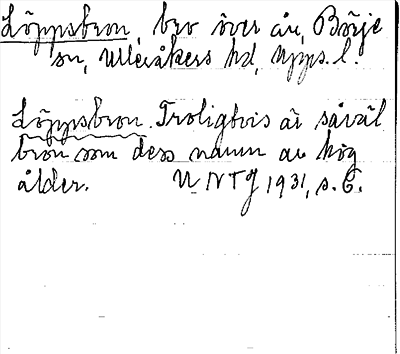 Löppsbron, bro över ån, Börje
sn, Ulleråkers hd, Upps. l.
Löppsbron. Troligtvis är såväl
bron som dess namn av hög
ålder. UNT 1931, s. 6.